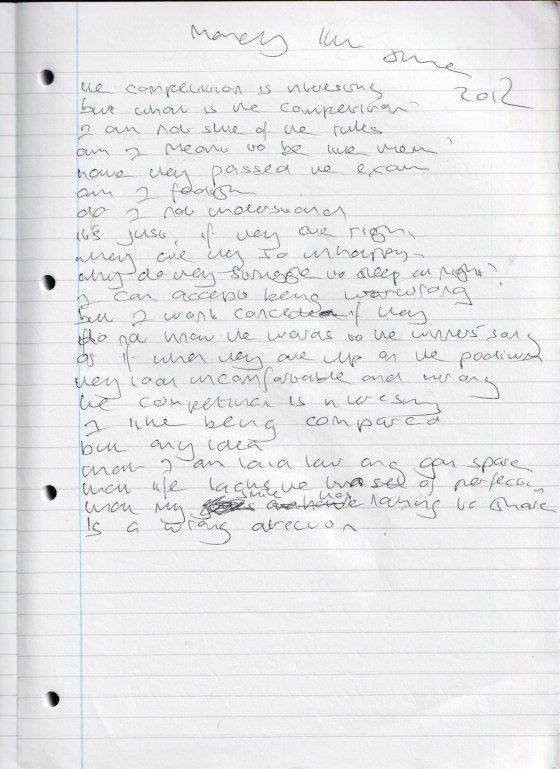 Monday 11th June
2012
the competition is interesting
but what is the competition
I am not sure of the rules
am I meant to be like them?
have they passed the exam
am I foolish
do I not understand
it's just, if they are right,
why are they so unhappy
why do they struggle to sleep at night?
I can accept being wrong
but I wont concede if they
do not know the words to the winners' song
as if when they are up on the podium
they look uncomfortable and wrong
the competition is interesting
I like being compared
but any idea
that I am spare
that life lacks the of perfection
that my smile has nothing to share
is a wrong direction.